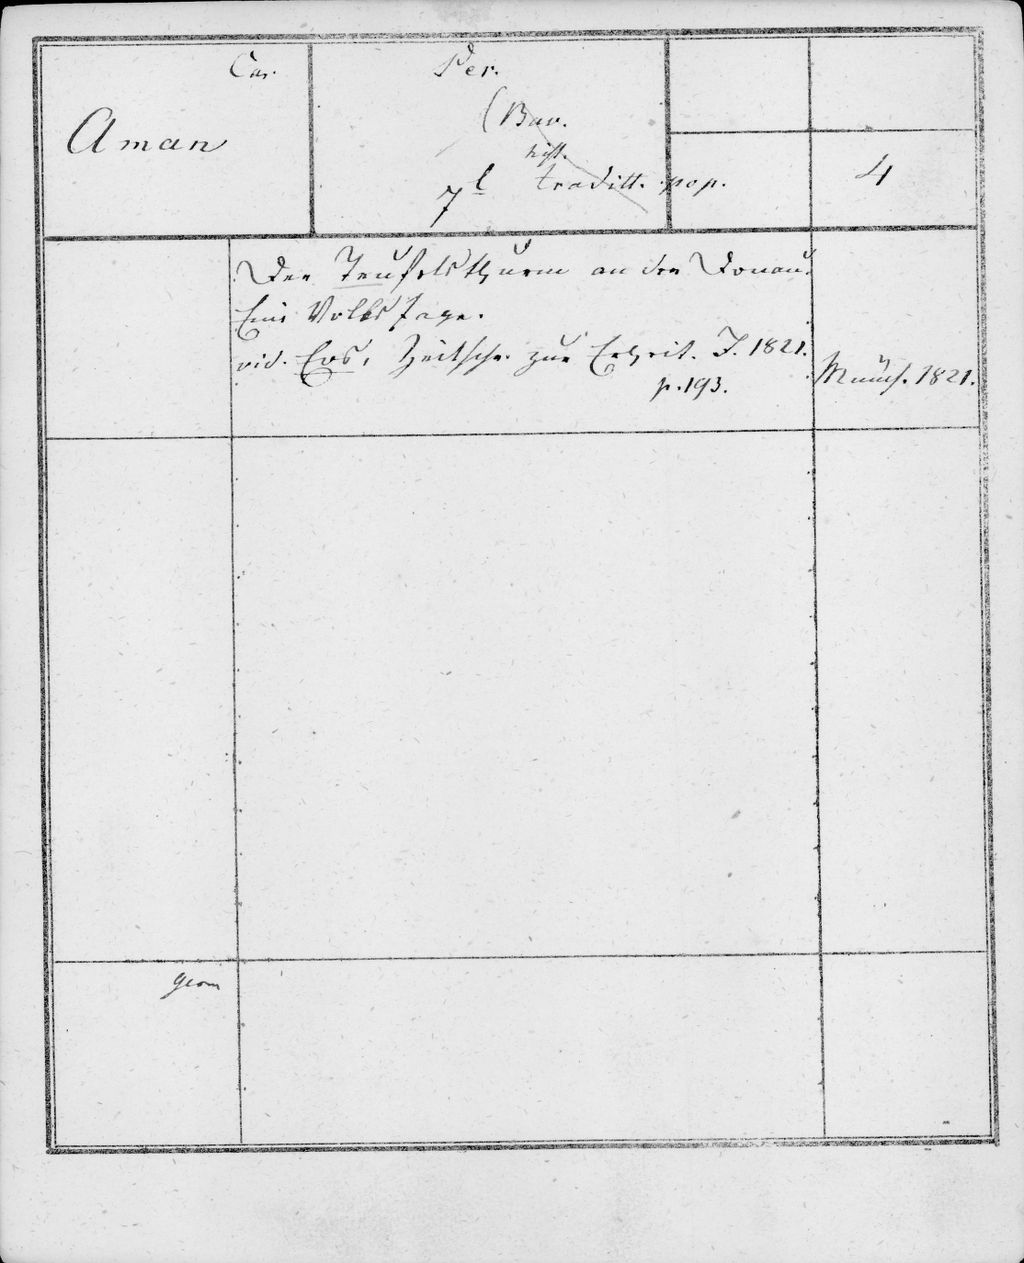 Car.
Aman
Per.
(Bav.
hist.
7l traditt. pop.
4
Der Teufelsthurm an der Donau.
Eine Volkssage.
vid. Eos, Zeitschr. zur Erheit. J. 1821.
p. 193.
Münch. 1821.